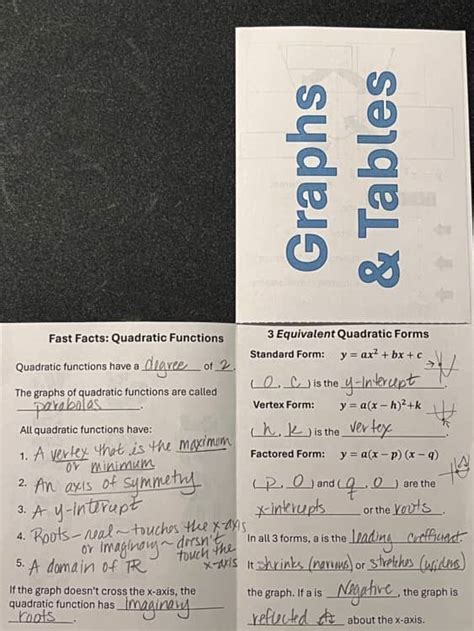 Graphs
& Tables
Fast Facts: Quadratic Functions
Quadratic functions have a degree of 2.
The graphs of quadratic functions are called
parabolas.
All quadratic functions have:
1. A vertex that is the maximum
or minimum
2. An axis of symmetry
3. A y-intercept
4. Roots - real ~ touches the x-axis
or imaginary ~ doesn't
touch the
x-axis
5. A domain of ℝ
If the graph doesn't cross the x-axis, the
quadratic function has Imaginary
roots.
3 Equivalent Quadratic Forms
Standard Form: y = ax² + bx + c
(0, c) is the y-intercept.
Vertex Form: y = a(x − h)²+k
(h, k) is the vertex
Factored Form: y = a(x − p) (x − q)
(p, 0) and (q, 0) are the
x-intercepts or the roots.
In all 3 forms, a is the leading coefficient.
It shrinks (narrows) or stretches (widens)
the graph. If a is Negative, the graph is
reflected about the x-axis.